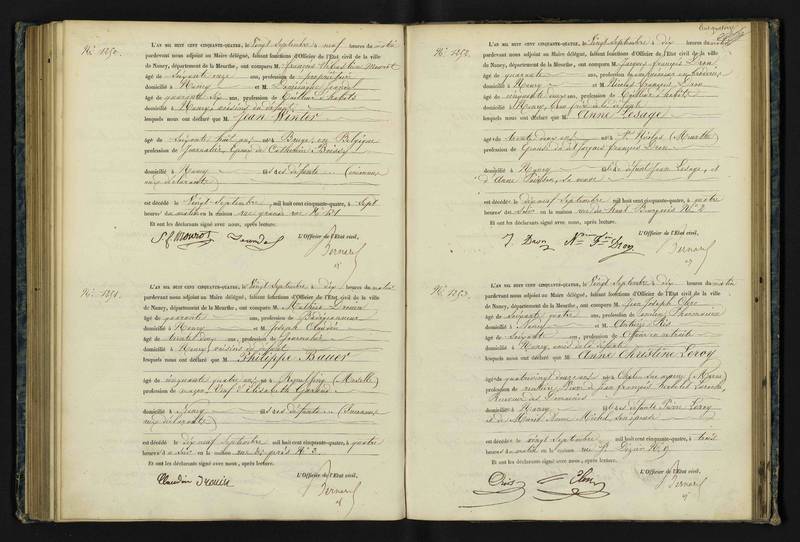 N.º 1250.
L'AN MIL HUIT CENT CINQUANTE-QUATRE, le Vingt Septembre à neuf heures du matin
pardevant nous adjoint au Maire délégué, faisant fonctions d'Officier de l'Etat civil de la ville
de Nancy, département de la Meurthe, ont comparu M. françois Sébastien Mourot
âgé de Soixante onze ans, profession de propriétaire
domicilié à Nancy et M. Dominique
âgé de quarante six ans, profession de Tailleur d'habits
domicilié à Nancy, voisins du défunt
lesquels nous ont déclaré que M. Jean Winter
âgé de Soixante huit ans, né à Bruges en Belgique
profession de Journalier, Epoux de Catherine Boissy
domicilié à Nancy fils des défunts (inconnus
aux déclarants)
est décédé le Vingt Septembre, mil huit cent cinquante-quatre, à Sept
heures du matin en la maison rue grande rue N.º 151
Et ont les déclarants signé avec nous, après lecture.
S. f. Mourot L'Officier de l'Etat civil,
Bernard
N.º 1251.
L'AN MIL HUIT CENT CINQUANTE-QUATRE, le Vingt Septembre à dix heures du matin
pardevant nous adjoint au Maire délégué, faisant fonctions d'Officier de l'Etat civil de la ville
de Nancy, département de la Meurthe, ont comparu M. Mathieu Drouin
âgé de quarante ans, profession de Badigeonneur
domicilié à Nancy et M. Joseph Claudin
âgé de trente deux ans, profession de Journalier
domicilié à Nancy voisins du défunt
lesquels nous ont déclaré que M. Philippe Bauer
âgé de cinquante quatre ans né à (Moselle)
profession de maçon Veuf d'Elisabeth
domicilié à Nancy fils des défunts (Inconnus
aux déclarants)
est décédé le dix neuf Septembre, mil huit cent cinquante-quatre, à quatre
heures du soir en la maison rue N.º 3
Et ont les déclarants signé avec nous, après lecture.
Claudin Drouin L'Officier de l'Etat civil,
Bernard
N.º 1252.
L'AN MIL HUIT CENT CINQUANTE-QUATRE, le Vingt Septembre à dix heures du matin
pardevant nous adjoint au Maire délégué, faisant fonctions d'Officier de l'Etat civil de la ville
de Nancy, département de la Meurthe, ont comparu M. Jacques françois Dron
âgé de quarante ans, profession de entrepreneur en broderies
domicilié à Nancy et M. Nicolas françois Dron
âgé de cinquante ans, profession de Tailleur d'habits
domicilié à Nancy,
lesquels nous ont déclaré que M. Anne Lesage
âgé de trente deux ans né à St. Nicolas (Meurthe)
profession de Epouse du dit Jacques françois Dron
domicilié à Nancy fille de défunt Jean Lesage, et
d'Anne
est décédé le dix neuf Septembre, mil huit cent cinquante-quatre, à quatre
heures du soir en la maison rue du haut Bourgeois N.º 2
Et ont les déclarants signé avec nous, après lecture.
J. Dron N.as F.ois Dron L'Officier de l'Etat civil,
Bernard
N.º 1253.
L'AN MIL HUIT CENT CINQUANTE-QUATRE, le Vingt Septembre à dix heures du matin
pardevant nous adjoint au Maire délégué, faisant fonctions d'Officier de l'Etat civil de la ville
de Nancy, département de la Meurthe, ont comparu M. Jean Joseph
âgé de Soixante quatre ans, profession de ancien Pharmacien
domicilié à Nancy et M.
âgé de Soixante ans, profession de Officier en retraite
domicilié à Nancy, amis de la défunte
lesquels nous ont déclaré que M. Anne Christine Leroy
âgé de quatre vingt douze ans né à Chalons sur marne (Marne)
profession de rentière, Veuve de Jean françois Nicolas
Receveur des Domaines
domicilié à Nancy fille des défunts Pierre Leroy
et de Marie Anne Michel son épouse
est décédé le vingt Septembre mil huit cent cinquante-quatre, à trois
heures du matin en la maison rue St. Dizier N.º 9
Et ont les déclarants signé avec nous, après lecture.
L'Officier de l'Etat civil,
Bernard